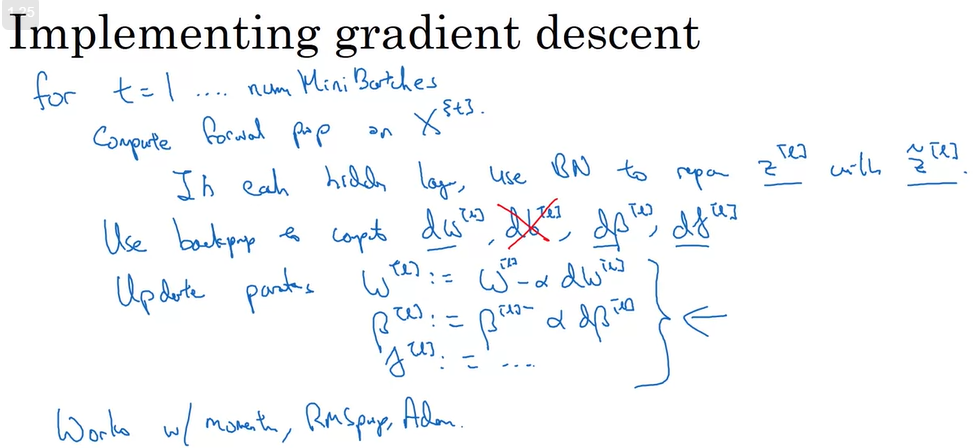 1.25
Implementing gradient descent
for t = 1 .... num Mini Batches
Compute forward prop on X^{t}.
In each hidden layer, use BN to repar z^[l] with z̃^[l].
Use backprop to compute dw^[l], db^[l], dβ^[l], dγ^[l]
Update parates W^[l] := W^[l] - α dw^[l]
β^[l] := β^[l] - α dβ^[l]
γ^[l] := .... ←
Works w/ momentum, RMSprop, Adam.